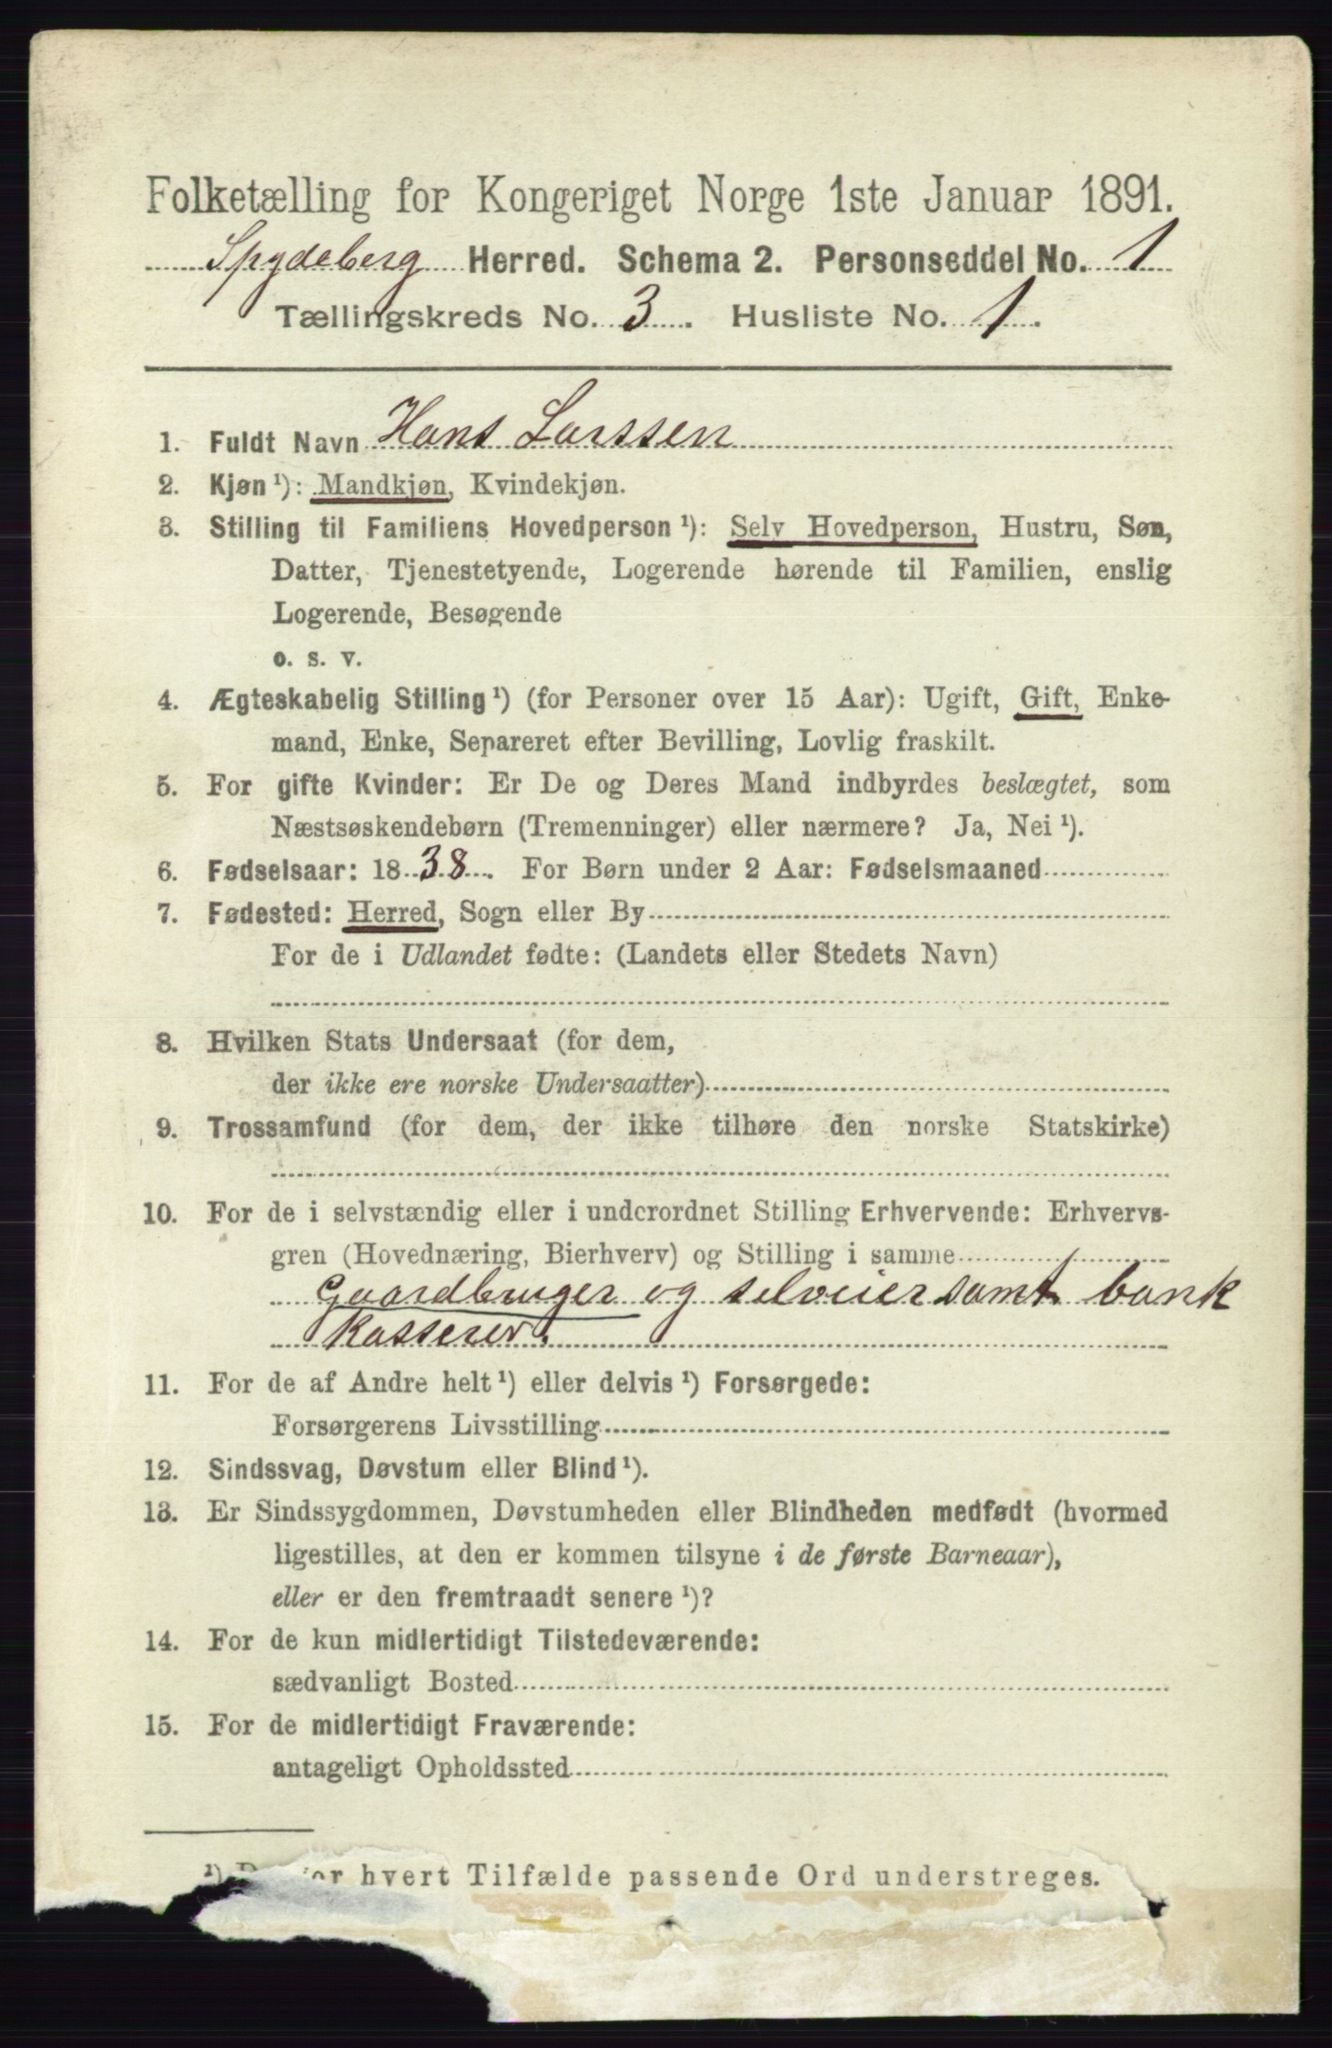 Folketælling for Kongeriget Norge 1ste Januar 1891.
Spydeberg Herred. Schema 2. Personseddel No. 1
Tællingskreds No. 3. Husliste No. 1.
1. Fuldt Navn Hans Larssen
2. Kjøn¹): Mandkjøn, Kvindekjøn.
3. Stilling til Familiens Hovedperson¹): Selv Hovedperson, Hustru, Søn,
Datter, Tjenestetyende, Logerende hørende til Familien, enslig
Logerende, Besøgende
o. s. v.
4. Ægteskabelig Stilling¹) (for Personer over 15 Aar): Ugift, Gift, Enke-
mand, Enke, Separeret efter Bevilling, Lovlig fraskilt.
5. For gifte Kvinder: Er De og Deres Mand indbyrdes beslægtet, som
Næstsøskendebørn (Tremenninger) eller nærmere? Ja, Nei¹).
6. Fødselsaar: 1838. For Børn under 2 Aar: Fødselsmaaned
7. Fødested: Herred, Sogn eller By
For de i Udlandet fødte: (Landets eller Stedets Navn)
8. Hvilken Stats Undersaat (for dem,
der ikke ere norske Undersaatter)
9. Trossamfund (for dem, der ikke tilhøre den norske Statskirke)
10. For de i selvstændig eller i underordnet Stilling Erhvervende: Erhvervs-
gren (Hovednæring, Bierhverv) og Stilling i samme
Gaardbruger og selveier samt bank
kasserer.
11. For de af Andre helt¹) eller delvis¹) Forsørgede:
Forsørgerens Livsstilling
12. Sindssvag, Døvstum eller Blind¹).
13. Er Sindssygdommen, Døvstumheden eller Blindheden medfødt (hvormed
ligestilles, at den er kommen tilsyne i de første Barneaar),
eller er den fremtraadt senere¹)?
14. For de kun midlertidigt Tilstedeværende:
sædvanligt Bosted
15. For de midlertidigt Fraværende:
antageligt Opholdssted
¹) hvert Tilfælde passende Ord understreges.